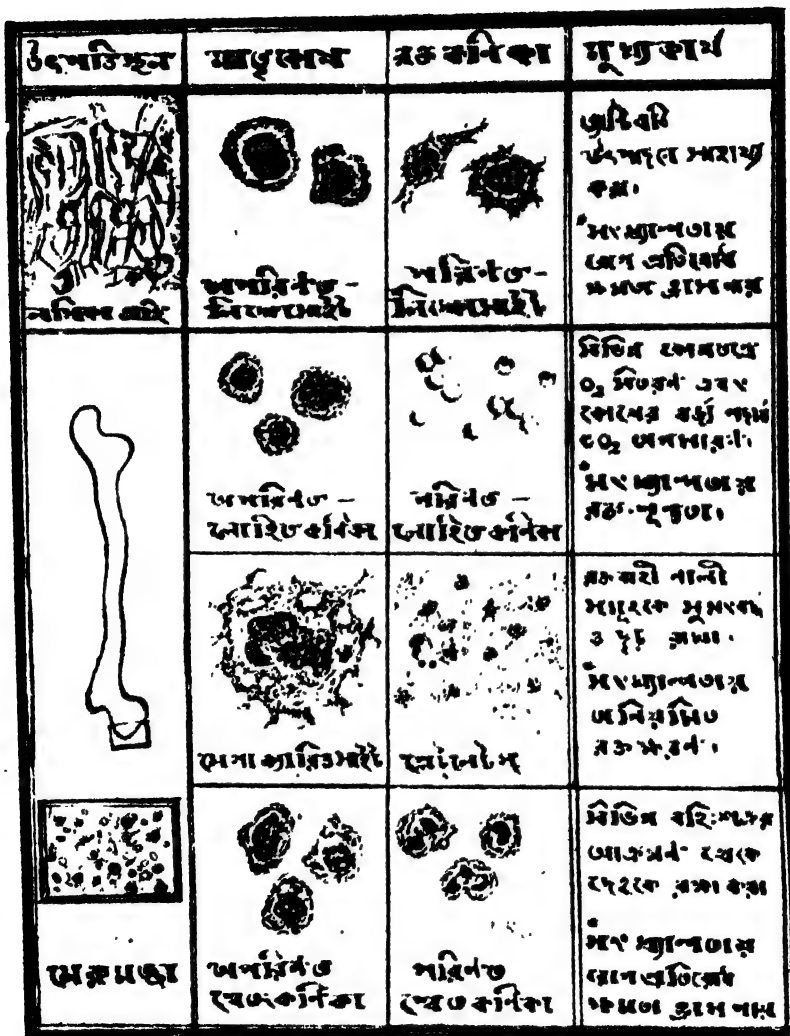 উৎপত্তিস্থল
মাতৃকোষ
রক্ত কণিকা
মুখ্যকার্য
লসিকা গ্রন্থি
অপরিণত -
লিম্ফোসাইট
পরিণত -
লিম্ফোসাইট
এ্যান্টিবডি
উৎপাদনে সাহায্য
করা।
*সংখ্যাল্পতায়
রোগ প্রতিরোধ
ক্ষমতা হ্রাস পায়
অপরিণত -
লোহিত কণিকা
পরিণত -
লোহিত কণিকা
বিভিন্ন কোষতন্ত্রে
O₂ বিতরণ এবং
কোষের বর্জ্য পদার্থ
CO₂ অপসারণ।
*সংখ্যাল্পতায়
রক্ত-শূন্যতা।
মেগাক্যারিওসাইট
প্লেটলেটস্
রক্তবাহী নালী
সমূহকে সুসংবদ্ধ
ও দৃঢ় রাখা।
*সংখ্যাল্পতায়
অনিয়মিত
রক্তক্ষরণ।
মেরুমজ্জা
অপরিণত
শ্বেতকণিকা
পরিণত
শ্বেত কণিকা
বিভিন্ন বহিঃশত্রুর
আক্রমণ থেকে
দেহকে রক্ষা করা
*সংখ্যাল্পতায়
রোগ প্রতিরোধ
ক্ষমতা হ্রাস পায়